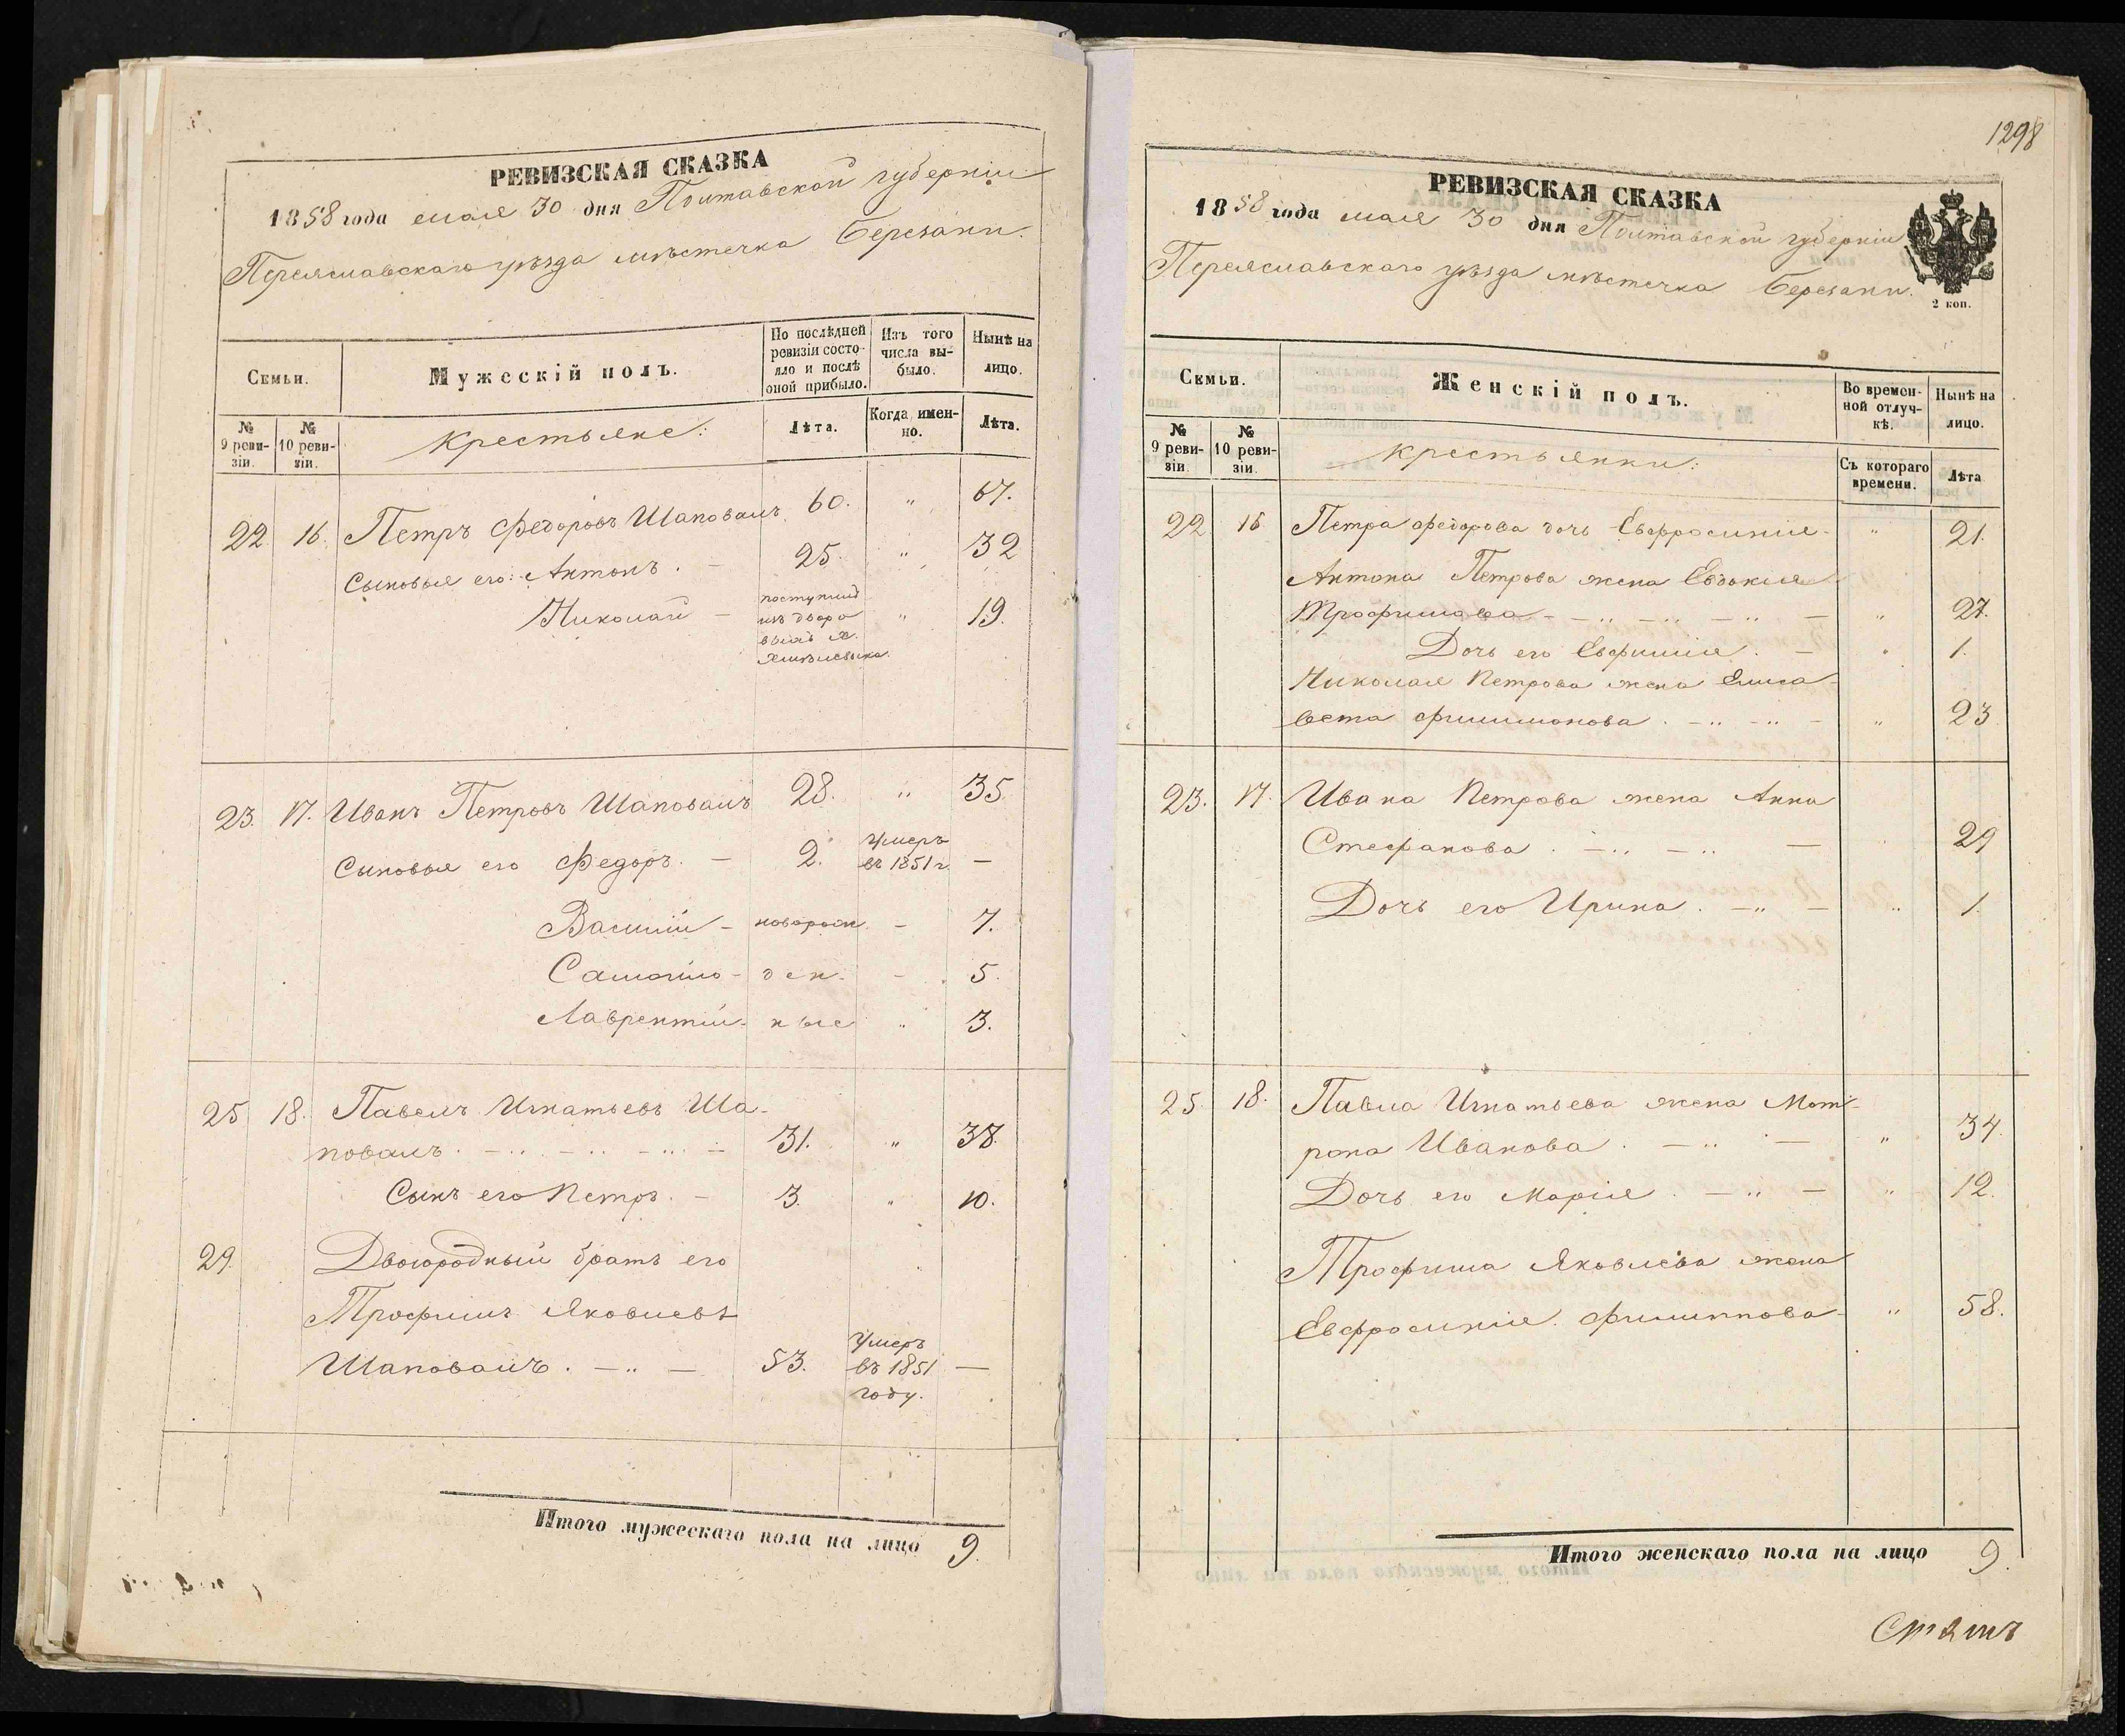 РЕВИЗСКАЯ СКАЗКА
1858 года мая 30 дня Полтавской губерніи
Переяславскаго уѣзда мѣстечка Березани.
Семьи.
Мужескій полъ.
По послѣдней ревизіи состояло и послѣ оной прибыло.
Изъ того числа выбыло.
Нынѣ на лицо.
№ 9 ревизіи.
№ 10 ревизіи.
Крестьяне:
Лѣта.
Когда именно.
Лѣта.
22. 16. Петръ Федоровъ Шаповалъ 60. " 67.
Сыновья его: Антонъ. – 25. " 32
Николай – поступилъ изъ дворовыхъ " 19.
23. 17. Иванъ Петровъ Шаповалъ 28. " 35
Сыновья его Федоръ. – 2. Умеръ въ 1851 г. –
Василій – новорож – 7.
Самойло – ден. – 5.
Лаврентій – ные " 3.
25 18. Павелъ Игнатьевъ Ша-
повалъ. – " – " – " – 31. " 38.
Сынъ его Петръ. – 3. " 10.
29. Двоюродный братъ его
Трофимъ Яковлевъ
Шаповалъ. – " – 53. Умеръ въ 1851 году. –
Итого мужескаго пола на лицо 9.
1298
РЕВИЗСКАЯ СКАЗКА
1858 года мая 30 дня Полтавской губерніи
Переяславскаго уѣзда мѣстечка Березани.
2 коп.
Семьи.
Женскій полъ.
Во временной отлучкѣ.
Нынѣ на лицо.
№ 9 ревизіи.
№ 10 ревизіи.
Крестьянки:
Съ котораго времени.
Лѣта
22 16 Петра Федорова дочь Евфросинія – " 21.
Антона Петрова жена Евдокия
Трофимова – – " – " – " – " 27.
Дочь его Евфимія. – " 1.
Николая Петрова жена Елиса-
вета Филимонова. – " – " – " 23
23. 17. Ивана Петрова жена Анна
Стефанова. – " – " – 29
Дочь его Ирина. – " – " 1.
25. 18. Павла Игнатьева жена Мот-
рона Иванова. – " – " 34.
Дочь его Марія. – " – " 12.
Трофима Яковлева жена
Евфросинія Филиппова – " 58.
Итого женскаго пола на лицо 9.